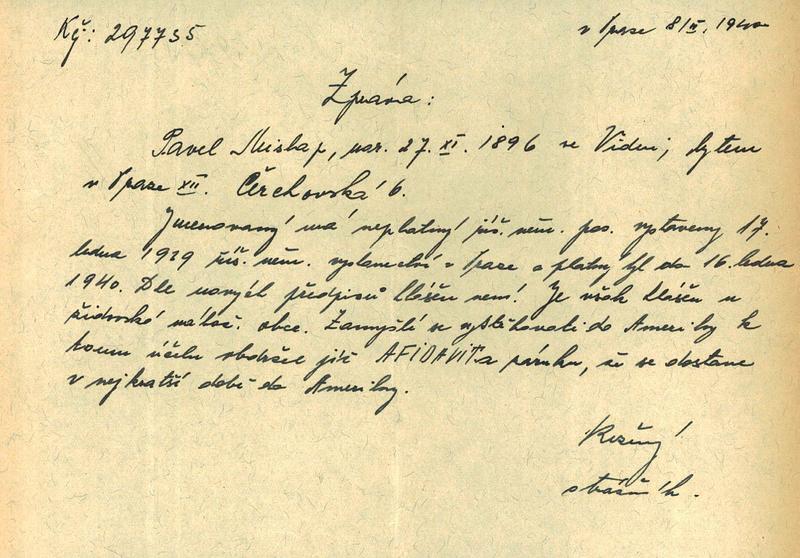 Kř: 297735
v Praze 8/II, 1940
Zpráva:
Pavel nar. 27. XI. 1896 ve Vídni, bytem
v Praze XII. Čerchovská 6.
Jmenovaný má neplatný říš. něm. pas. vystavený 17.
ledna 1939 říš. něm. vyslanectví v Praze a platný byl do 16. ledna
1940. Dle nových předpisů hlášen není! Je však hlášen u
židovské nábož. obce. Zamýšlí se vystěhovati do Ameriky k
tomu účelu obdržel již AFIDAVIT a záruku, že se dostane
v nejkratší době do Ameriky.
strážník.